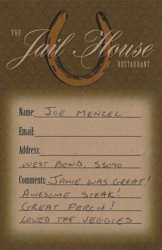 THE
Jail House
RESTAURANT
Name: JOE MENZEL
Email:
Address:
WEST BEND, 53090
Comments: JAMIE WAS GREAT!
AWESOME STEAK!
GREAT PERCH!
LOVED THE VEGGIES